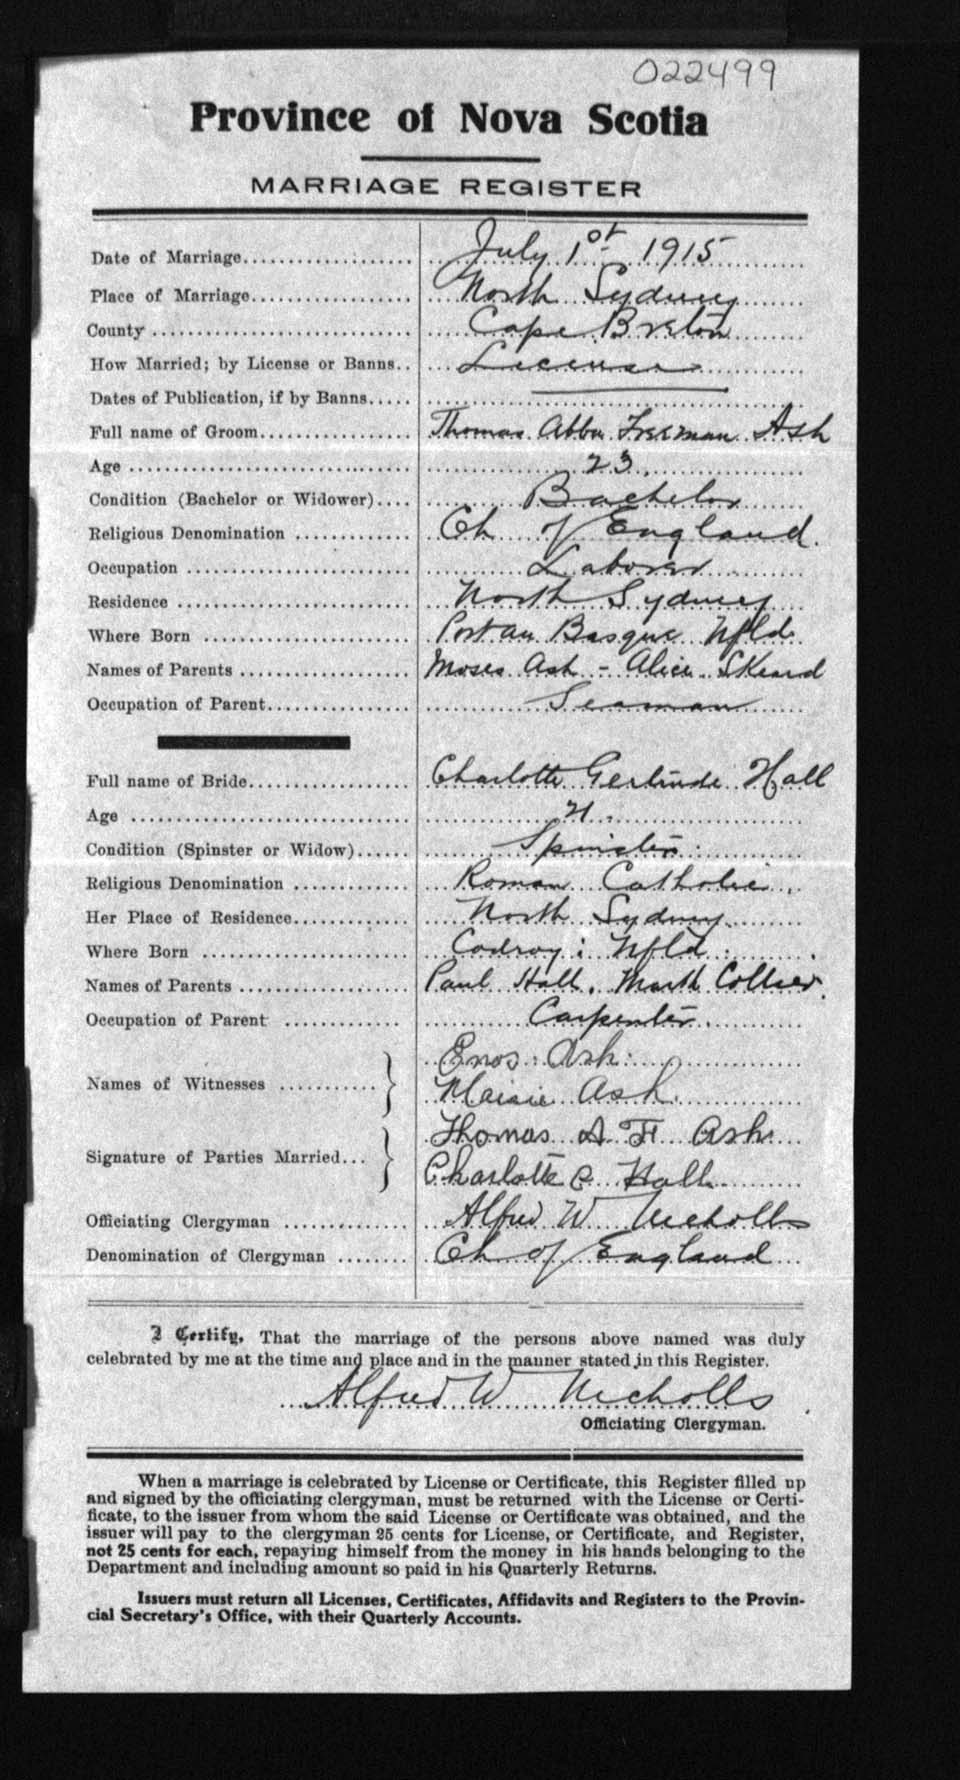 022499
Province of Nova Scotia
MARRIAGE REGISTER
Date of Marriage July 1st 1915
Place of Marriage North Sydney
County Cape Breton
How Married; by License or Banns License
Dates of Publication, if by Banns
Full name of Groom Thomas Abba Freeman Ash
Age 23
Condition (Bachelor or Widower) Bachelor
Religious Denomination Ch of England
Occupation Laborer
Residence North Sydney
Where Born Port au Basque Nfld
Names of Parents Moses Ash - Alice
Occupation of Parent Seaman
Full name of Bride Charlotte Gertrude Hall
Age 21
Condition (Spinster or Widow) Spinster
Religious Denomination Roman Catholic
Her Place of Residence North Sydney
Where Born Codroy: Nfld
Names of Parents Paul Hall. Collier
Occupation of Parent Carpenter
Names of Witnesses Enos Ash
Maisie Ash
Signature of Parties Married Thomas A F Ash
Charlotte G Hall
Officiating Clergyman Alfred W Nicholls
Denomination of Clergyman Ch of England
I Certify, That the marriage of the persons above named was duly
celebrated by me at the time and place and in the manner stated in this Register.
Alfred W Nicholls
Officiating Clergyman.
When a marriage is celebrated by License or Certificate, this Register filled up
and signed by the officiating clergyman, must be returned with the License or Certi-
ficate, to the issuer from whom the said License or Certificate was obtained, and the
issuer will pay to the clergyman 25 cents for License, or Certificate, and Register,
not 25 cents for each, repaying himself from the money in his hands belonging to the
Department and including amount so paid in his Quarterly Returns.
Issuers must return all Licenses, Certificates, Affidavits and Registers to the Provin-
cial Secretary's Office, with their Quarterly Accounts.